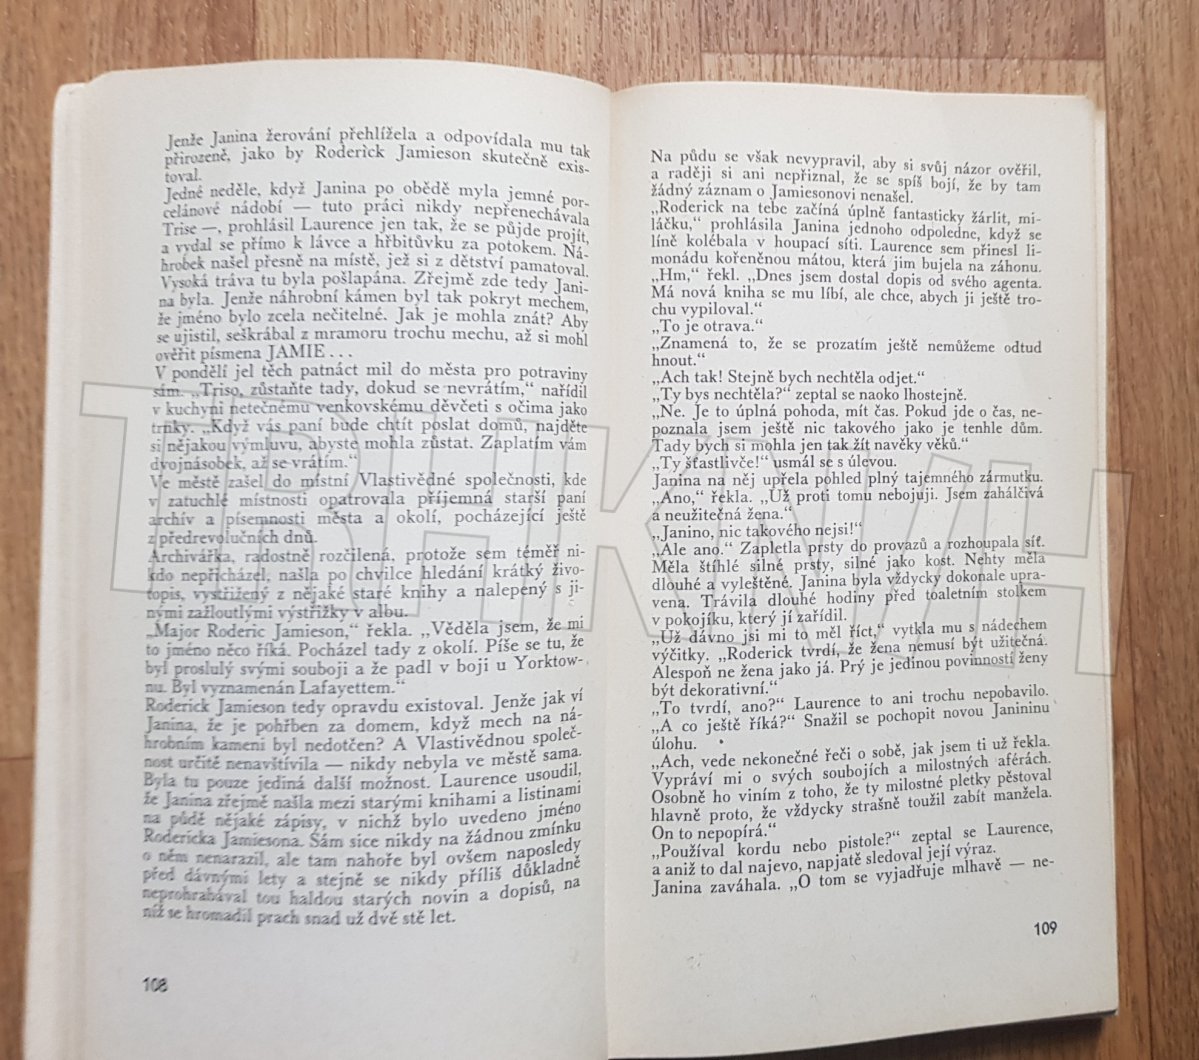 Jenže Janina žerování přehlížela a odpovídala mu tak
přirozeně, jako by Roderick Jamieson skutečně exis-
toval.
Jedné neděle, když Janina po obědě myla jemné por-
celánové nádobí — tuto práci nikdy nepřenechávala
Trise —, prohlásil Laurence jen tak, že se půjde projít,
a vydal se přímo k lávce a hřbitůvku za potokem. Ná-
hrobek našel přesně na místě, jež si z dětství pamatoval.
Vysoká tráva tu byla pošlapána. Zřejmě zde tedy Jani-
na byla. Jenže náhrobní kámen byl tak pokryt mechem,
že jméno bylo zcela nečitelné. Jak je mohla znát? Aby
se ujistil, seškrábal z mramoru trochu mechu, až si mohl
ověřit písmena JAMIE . . .
V pondělí jel těch patnáct mil do města pro potraviny
sám. „Triso, zůstaňte tady, dokud se nevrátím,“ nařídil
v kuchyni netečnému venkovskému děvčeti s očima jako
trnky. „Když vás paní bude chtít poslat domů, najděte
si nějakou výmluvu, abyste mohla zůstat. Zaplatím vám
dvojnásobek, až se vrátím.“
Ve městě zašel do místní Vlastivědné společnosti, kde
v zatuchlé místnosti opatrovala příjemná starší paní
archív a písemnosti města a okolí, pocházející ještě
z předrevolučních dnů.
Archivářka, radostně rozčilená, protože sem téměř ni-
kdo nepřicházel, našla po chvilce hledání krátký živo-
topis, vystřižený z nějaké staré knihy a nalepený s ji-
nými zažloutlými výstřižky v albu.
„Major Roderic Jamieson,“ řekla. „Věděla jsem, že mi
to jméno něco říká. Pocházel tady z okolí. Píše se tu, že
byl proslulý svými souboji a že padl v boji u Yorktow-
nu. Byl vyznamenán Lafayettem.“
Roderick Jamieson tedy opravdu existoval. Jenže jak ví
Janina, že je pohřben za domem, když mech na ná-
hrobním kameni byl nedotčen? A Vlastivědnou společ-
nost určitě nenavštívila — nikdy nebyla ve městě sama.
Byla tu pouze jediná další možnost. Laurence usoudil,
že Janina zřejmě našla mezi starými knihami a listinami
na půdě nějaké zápisy, v nichž bylo uvedeno jméno
Rodericka Jamiesona. Sám sice nikdy na žádnou zmínku
o něm nenarazil, ale tam nahoře byl ovšem naposledy
před dávnými lety a stejně se nikdy příliš důkladně
neprohrabával tou haldou starých novin a dopisů, na
níž se hromadil prach snad už dvě stě let.
108
Na půdu se však nevypravil, aby si svůj názor ověřil,
a raději si ani nepřiznal, že se spíš bojí, že by tam
žádný záznam o Jamiesonovi nenašel.
„Roderick na tebe začíná úplně fantasticky žárlit, mi-
láčku,“ prohlásila Janina jednoho odpoledne, když se
líně kolébala v houpací síti. Laurence sem přinesl li-
monádu kořeněnou mátou, která jim bujela na záhonu.
„Hm,“ řekl. „Dnes jsem dostal dopis od svého agenta.
Má nová kniha se mu líbí, ale chce, abych ji ještě tro-
chu vypiloval.“
„To je otrava.“
„Znamená to, že se prozatím ještě nemůžeme odtud
hnout.“
„Ach tak! Stejně bych nechtěla odjet.“
„Ty bys nechtěla?“ zeptal se naoko lhostejně.
„Ne. Je to úplná pohoda, mít čas. Pokud jde o čas, ne-
poznala jsem ještě nic takového jako je tenhle dům.
Tady bych si mohla jen tak žít navěky věků.“
„Ty šťastlivče!“ usmál se s úlevou.
Janina na něj upřela pohled plný tajemného zármutku.
„Ano,“ řekla. „Už proti tomu nebojuji. Jsem zahálčivá
a neužitečná žena.“
„Janino, nic takového nejsi!“
„Ale ano.“ Zapletla prsty do provazů a rozhoupala síť.
Měla štíhlé silné prsty, silné jako kost. Nehty měla
dlouhé a vyleštěné. Janina byla vždycky dokonale upra-
vena. Trávila dlouhé hodiny před toaletním stolkem
v pokojíku, který jí zařídil.
„Už dávno jsi mi to měl říct,“ vytkla mu s nádechem
výčitky. „Roderick tvrdí, že žena nemusí být užitečná.
Alespoň ne žena jako já. Prý je jedinou povinností ženy
být dekorativní.“
„To tvrdí, ano?“ Laurence to ani trochu nepobavilo.
„A co ještě říká?“ Snažil se pochopit novou Janininu
úlohu.
„Ach, vede nekonečné řeči o sobě, jak jsem ti už řekla.
Vypráví mi o svých soubojích a milostných aférách.
Osobně ho viním z toho, že ty milostné pletky pěstoval
hlavně proto, že vždycky strašně toužil zabít manžela.
On to nepopírá.“
„Používal kordu nebo pistole?“ zeptal se Laurence,
a aniž to dal najevo, napjatě sledoval její výraz.
Janina zaváhala. „O tom se vyjadřuje mlhavě — ne-
109